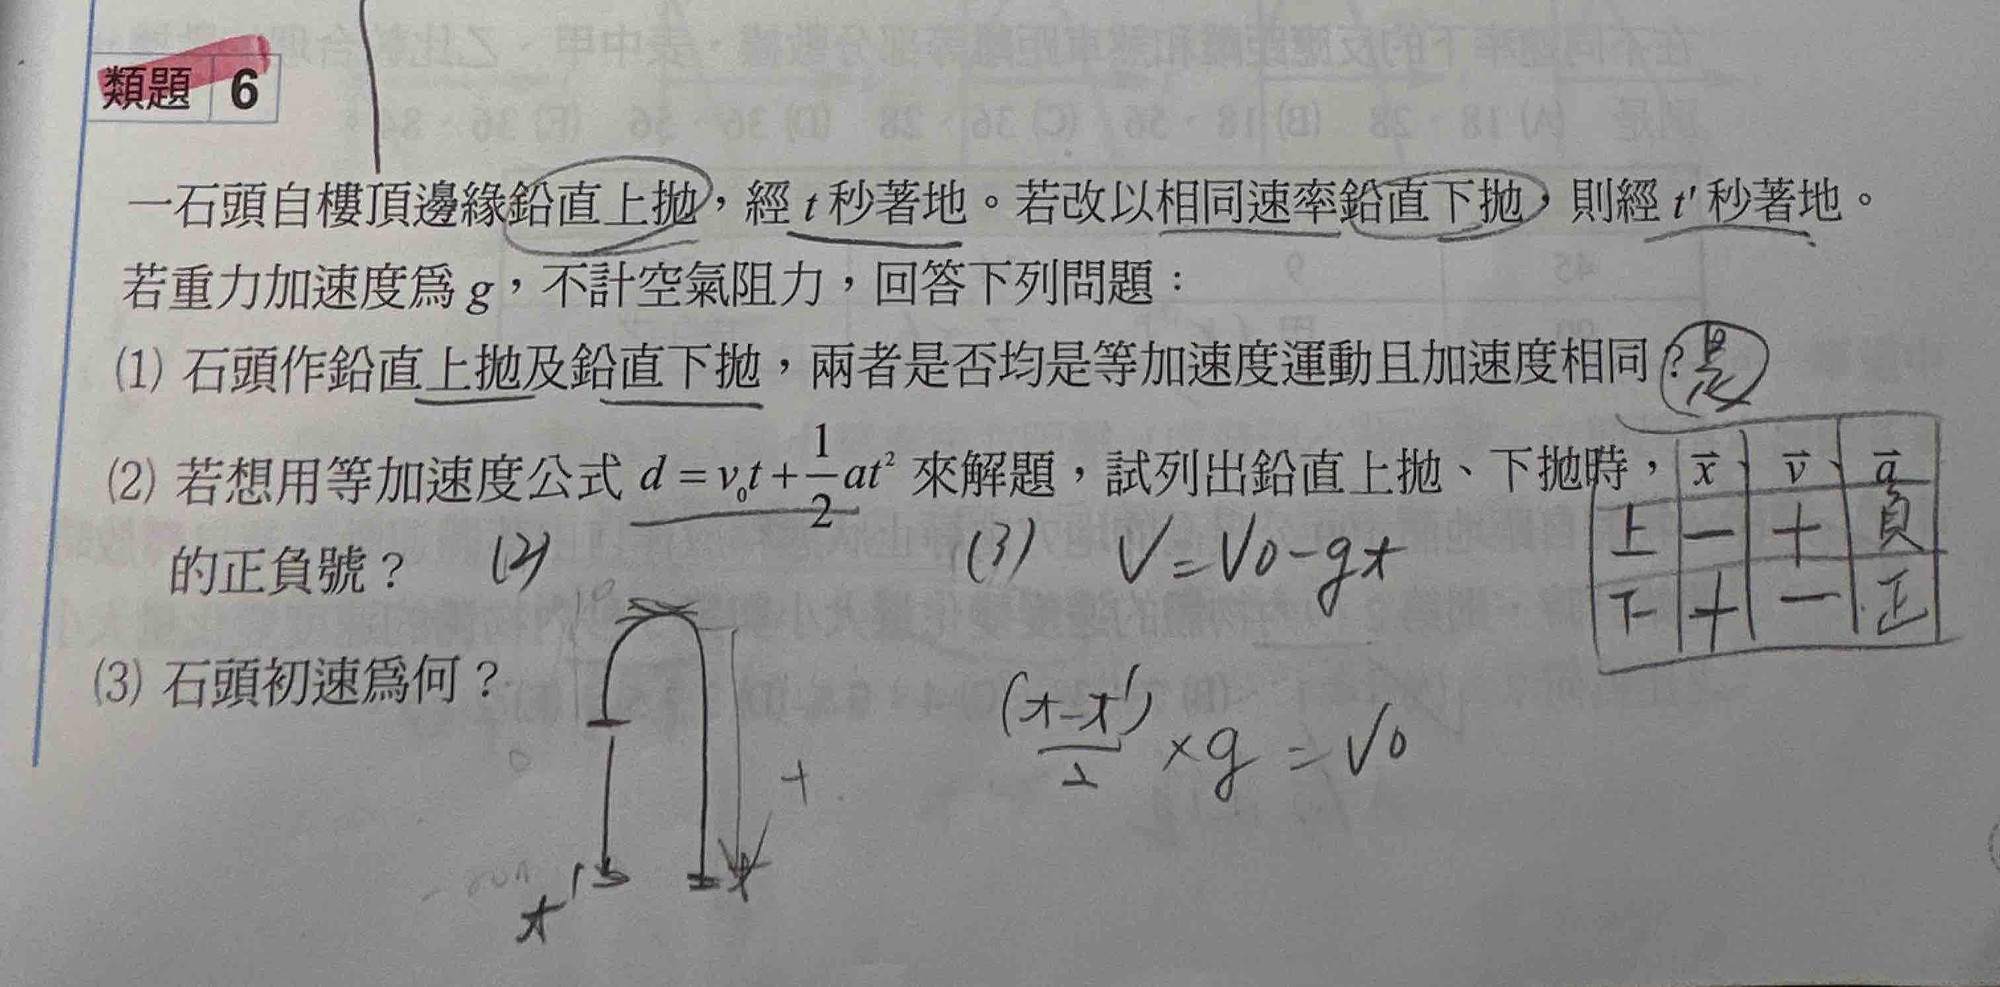 類題 6
一石頭自樓頂邊緣鉛直上拋，經 t 秒著地。若改以相同速率鉛直下拋，則經 t' 秒著地。
若重力加速度為 g，不計空氣阻力，回答下列問題：
(1) 石頭作鉛直上拋及鉛直下拋，兩者是否均是等加速度運動且加速度相同？是
(2) 若想用等加速度公式 d = v₀t + 1/2 at² 來解題，試列出鉛直上拋、下拋時，x⃗、v⃗、a⃗
的正負號？
上 − + 負
下 + − 正
(2)
(3) V = V0 − gt
(3) 石頭初速為何？
(t − t')/2 × g = V0
+
t'
t